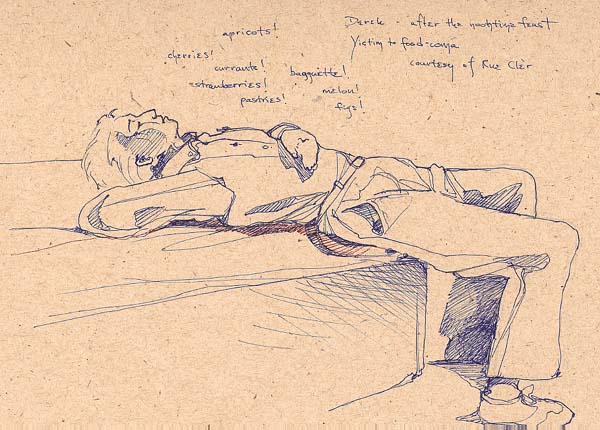 apricots!
cherries!
currants!
baguette!
strawberries!
melon!
pastries!
figs!
Derek - after the noontime feast
Victim to food-coma
courtesy of Rue Cler